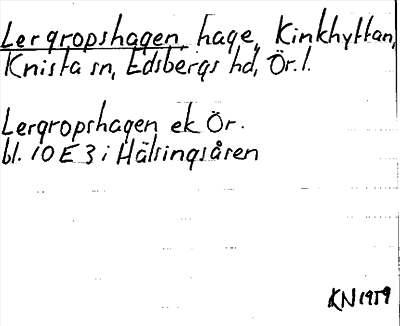 Lergropshagen, hage, Kinkhyttan,
Knista sn, Edsbergs hd, Ör. l.
Lergropshagen ek Ör.
bl. 10 E 3 i Hälsingsåren
KN 1959